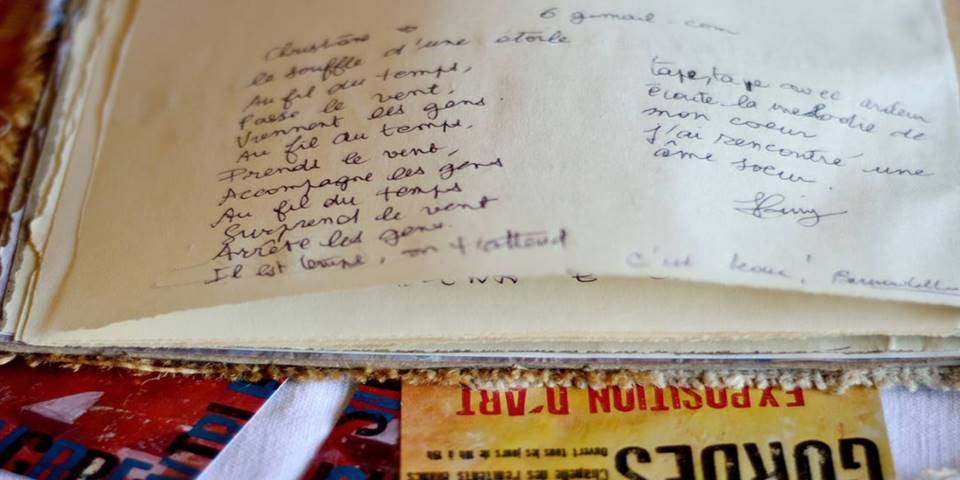 6 gmail.com
Christiane
le souffle d'une étoile
Au fil du temps,
Passe le vent,
Viennent les gens.
Au fil du temps,
Prends le vent,
Accompagne les gens
Au fil du temps
Surprend le vent
Arrête les gens.
Il est temps, on t'attend
tape, tape avec ardeur
écoute la mélodie de
mon coeur
j'ai rencontré une
âme soeur.
c'est beau!
EXPOSITION D'ART
GORDES
Ouvert tous les jours de 10h à 19h
Chapelle des Pénitents Blancs